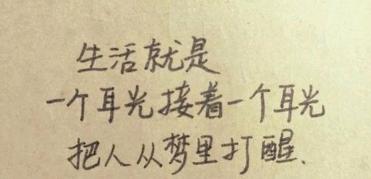 生活就是
一个耳光接着一个耳光
把人从梦里打醒.